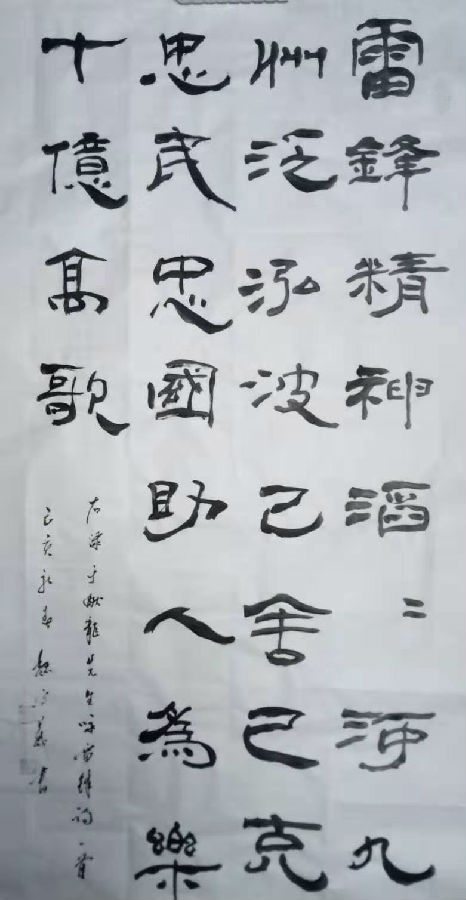 雷鋒精神滔〻河九
州泛泓波己舍己克
忠民忠國助人為樂
十億高歌
右錄于献龍先生咏雷鋒詞一首
己亥春書